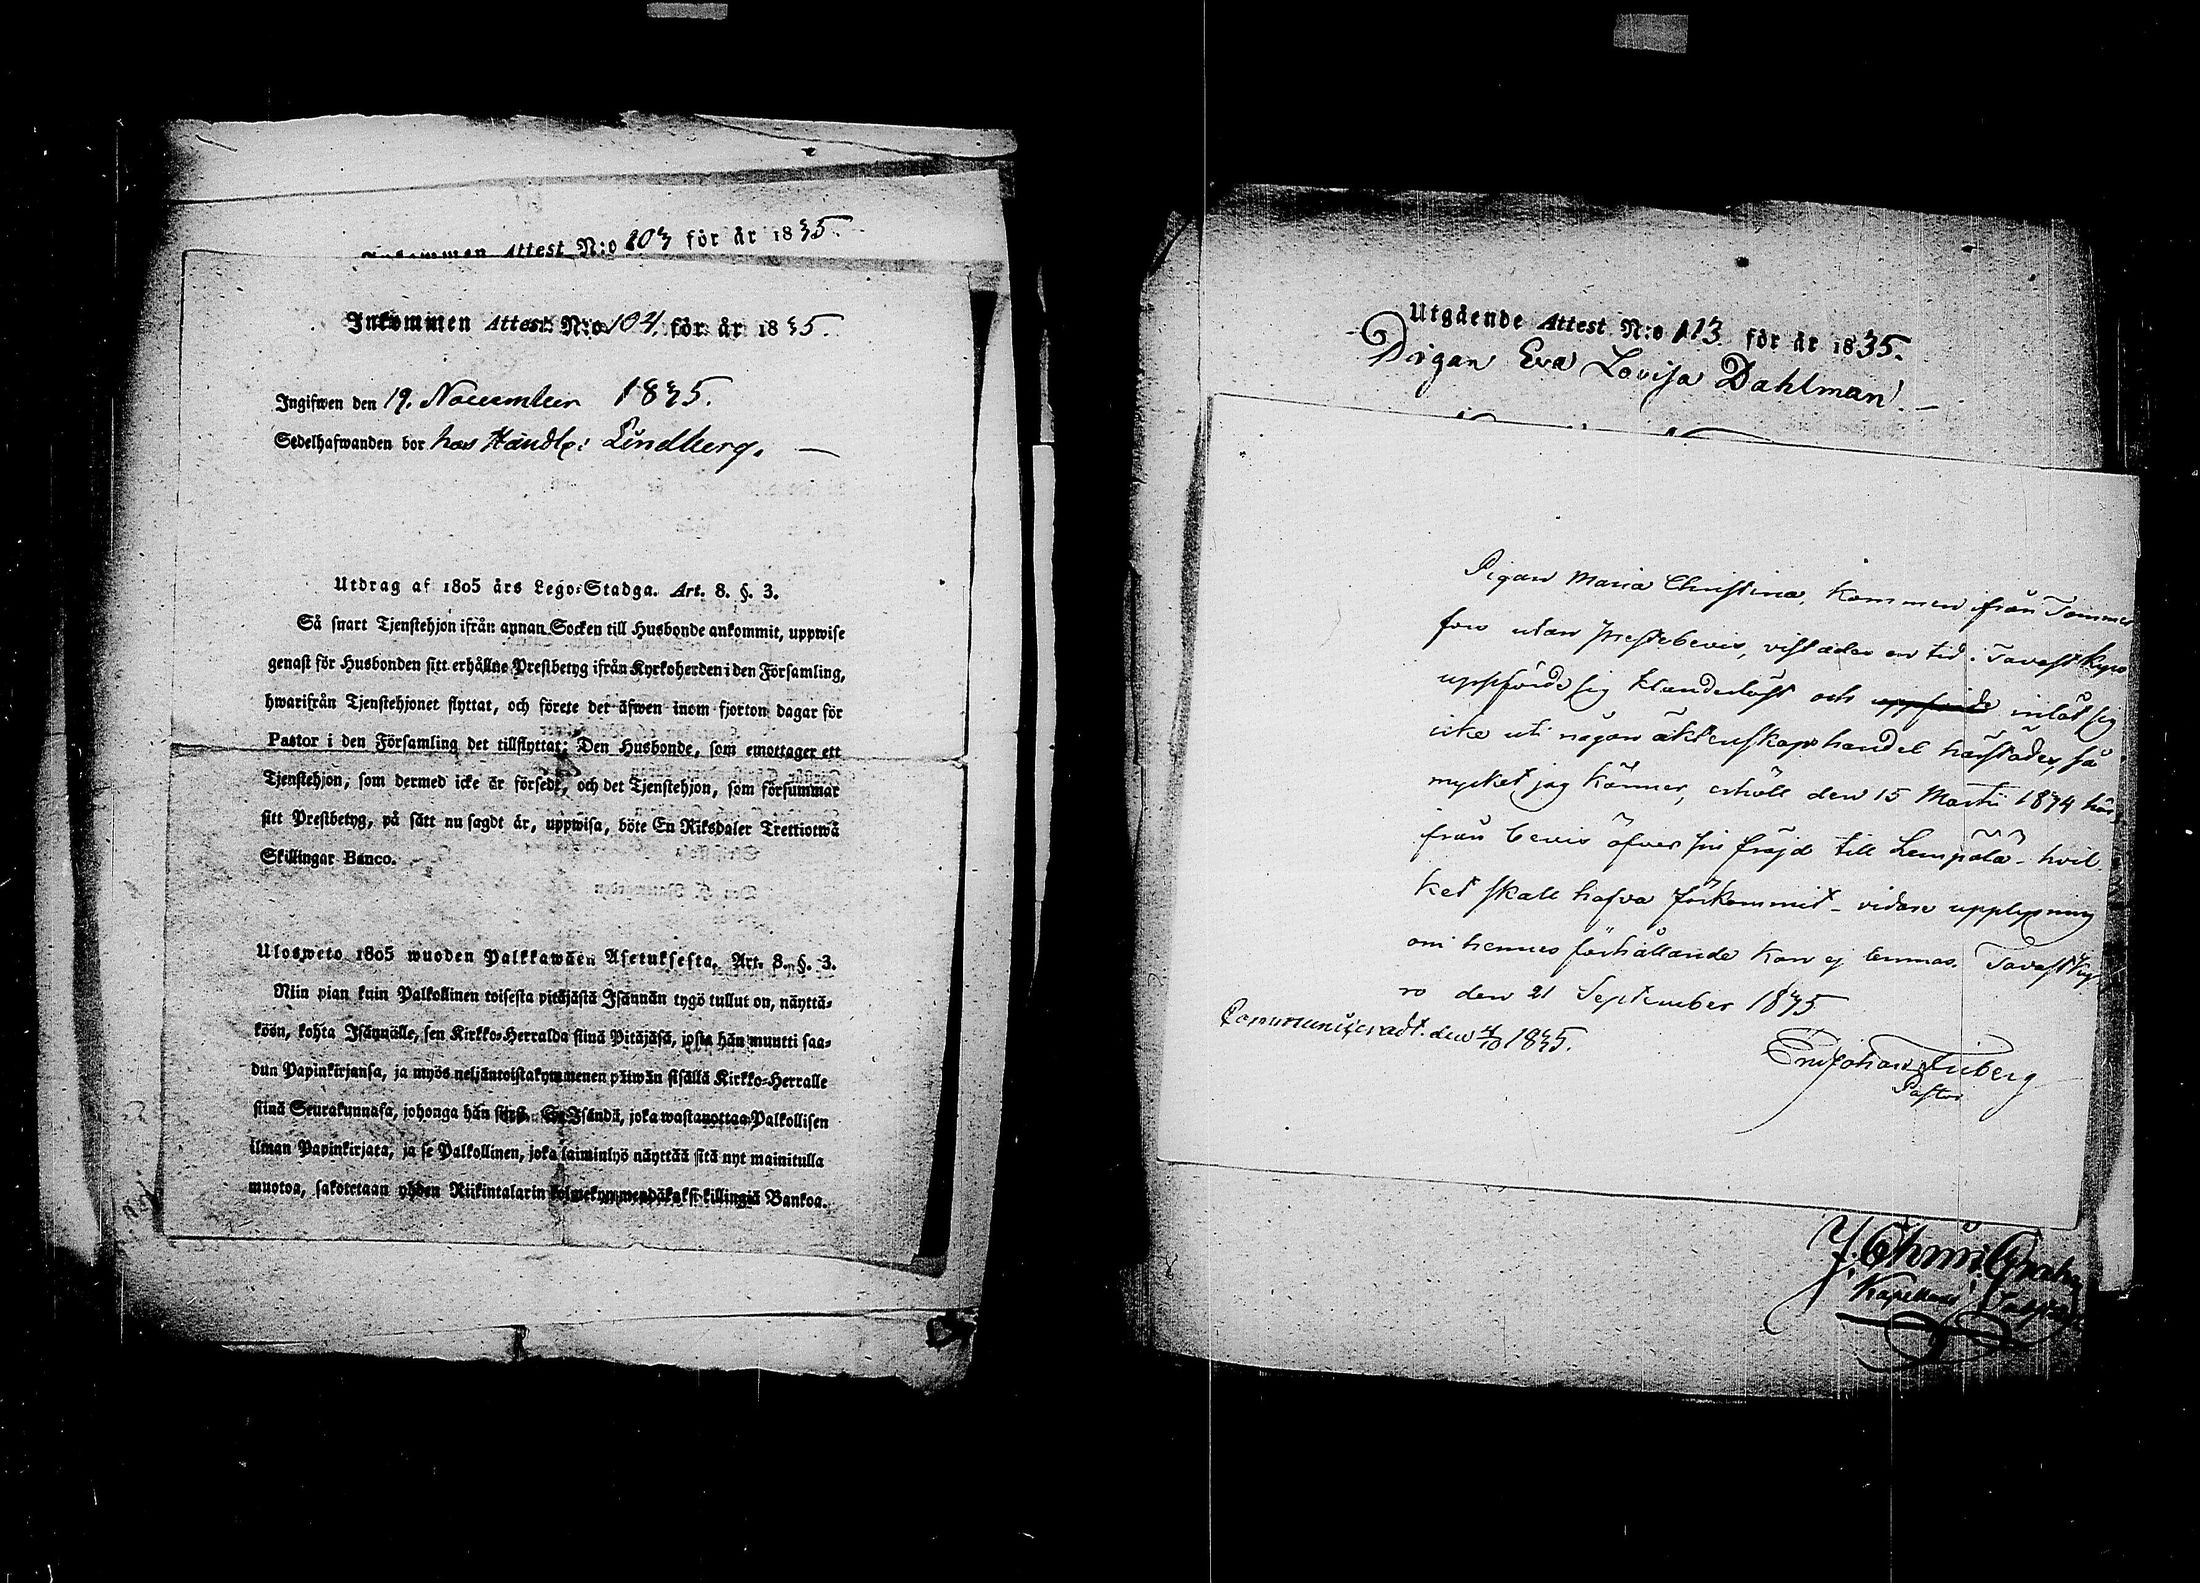 Inkommen Attest N:o 103 för år 1835.
Inkommen Attest N:o 104. för år 1835.
Ingifwen den 19. November 1835.
Sedelhafwanden bor hos Handl: Lindberg.
Utdrag af 1805 års Lego-Stadga. Art. 8. §. 3.
Så snart Tjenstehjon ifrån annan Socken till Husbonde ankommit, uppwise
genast för Husbonden sitt erhållne Prestbetyg ifrån Kyrkoherden i den Församling,
hwarifrån Tjenstehjonet flyttat, och förete det äfwen inom fjorton dagar för
Pastor i den Församling det tillflyttat: Den Husbonde, som emottager ett
Tjenstehjon, som dermed icke är försedt, och det Tjenstehjon, som försummar
sitt Prestbetyg, på sätt nu sagdt är, uppwisa, böte En Riksdaler Trettiotwå
Skillingar Banco.
Ulosweto 1805 wuoden Palkkawäen Asetuksesta. Art. 8. §. 3.
Niin pian kuin Palkollinen toisesta pitäjästä Isännän tygö tullut on, näyttä-
köön, kohta Isännälle, sen Kirkko-Herralda siinä Pitäjäsä, josta hän muutti saa-
dun Papinkirjansa, ja myös neljäntoistakymmenen päiwän sisällä Kirkko-Herralle
siinä Seurakunnasa, johonga hän siirsi. Se Isändä, joka wastanottaa Palkollisen
ilman Papinkirjata, ja se Palkollinen, joka laiminlyö näyttää sitä nyt mainitulla
muotoa, sakotetaan yhden Riikintalarin kolmekymmendäkaksi killingiä Bankoa.
Utgående Attest N:o 113 för år 1835.
Pigan Eva Lovisa Dahlman.
Pigan Maria Christina, kommen ifrån Tammer
fors utan prestebevis, vistades en tid i Tavastkyro
uppförde sig klanderlöst och uppförde inlåt sig
icke uti någon äktenskapshandel härstädes, så
mycket jag känner, erhöll den 15 Martii 1834 här
ifrån bevis öfver sin fräjd till Lempälä - hvil
ket skall hafva förkommit - vidare upplysning
om hennes förhållande kan ej lemnas. Tavastky
ro den 21 September 1835
Communiceradt. den 4/10 1835.
Pastor
Kapellans